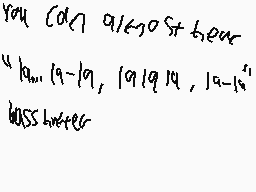 You can almost hear
"la... la-la, la la la, la-la"
basshunter